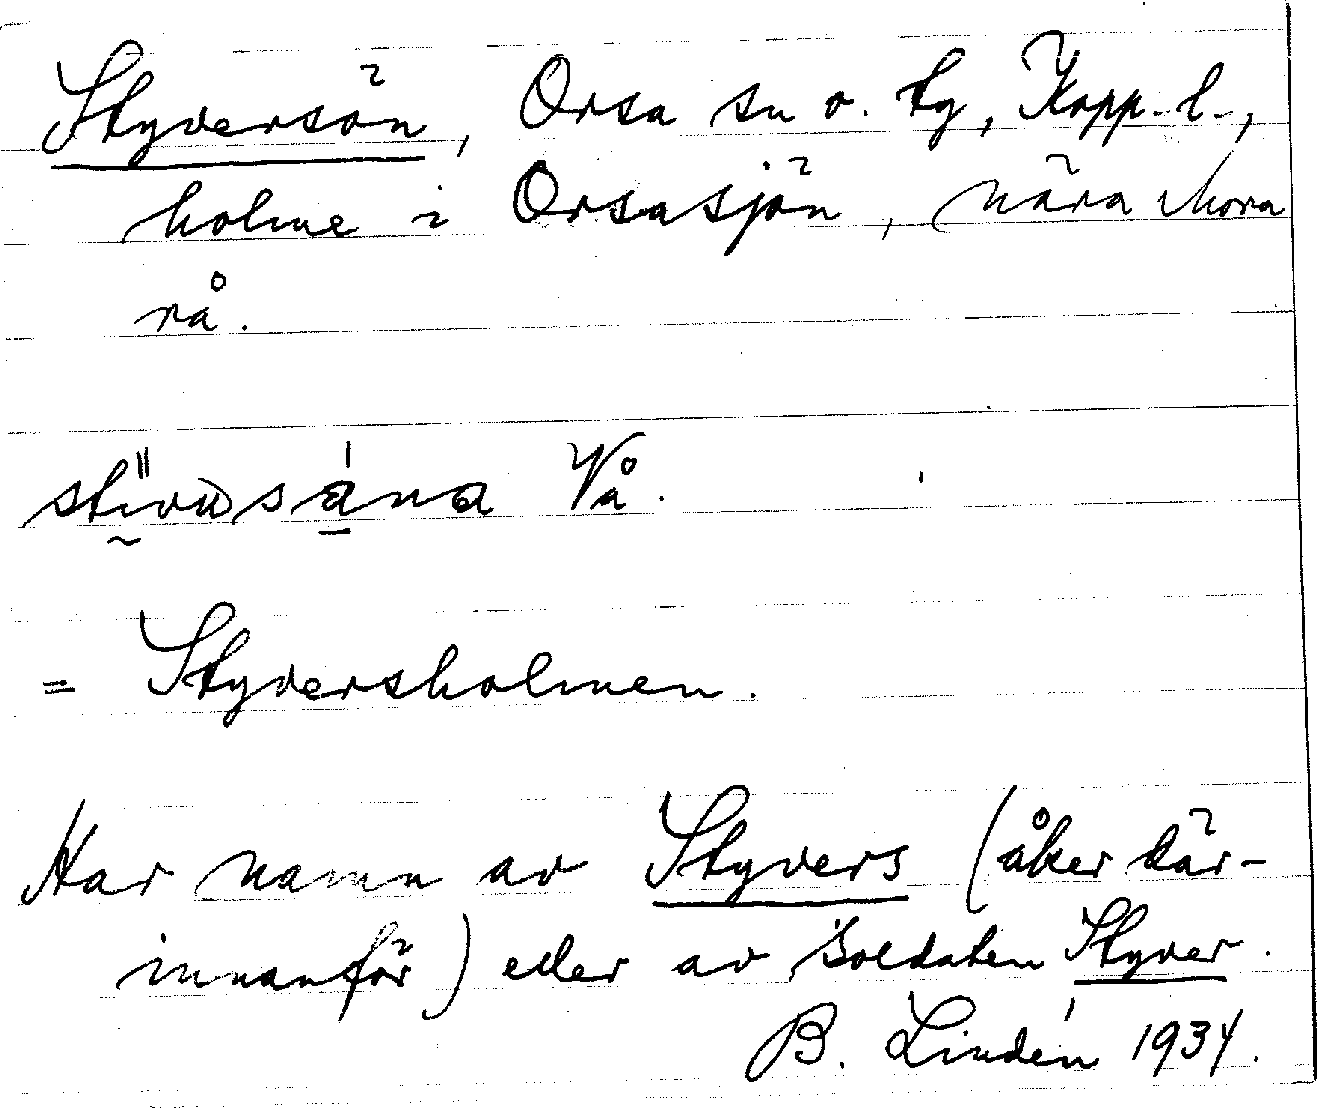 Styversön, Orsa sn o. tg, Kopp. l.,
holme i Orsasjön, nära Mora
rå.
Vå.
= Styversholmen.
Har namn av Styvers (åker där-
innanför) eller av soldaten Styver.
B. Lindén 1934.